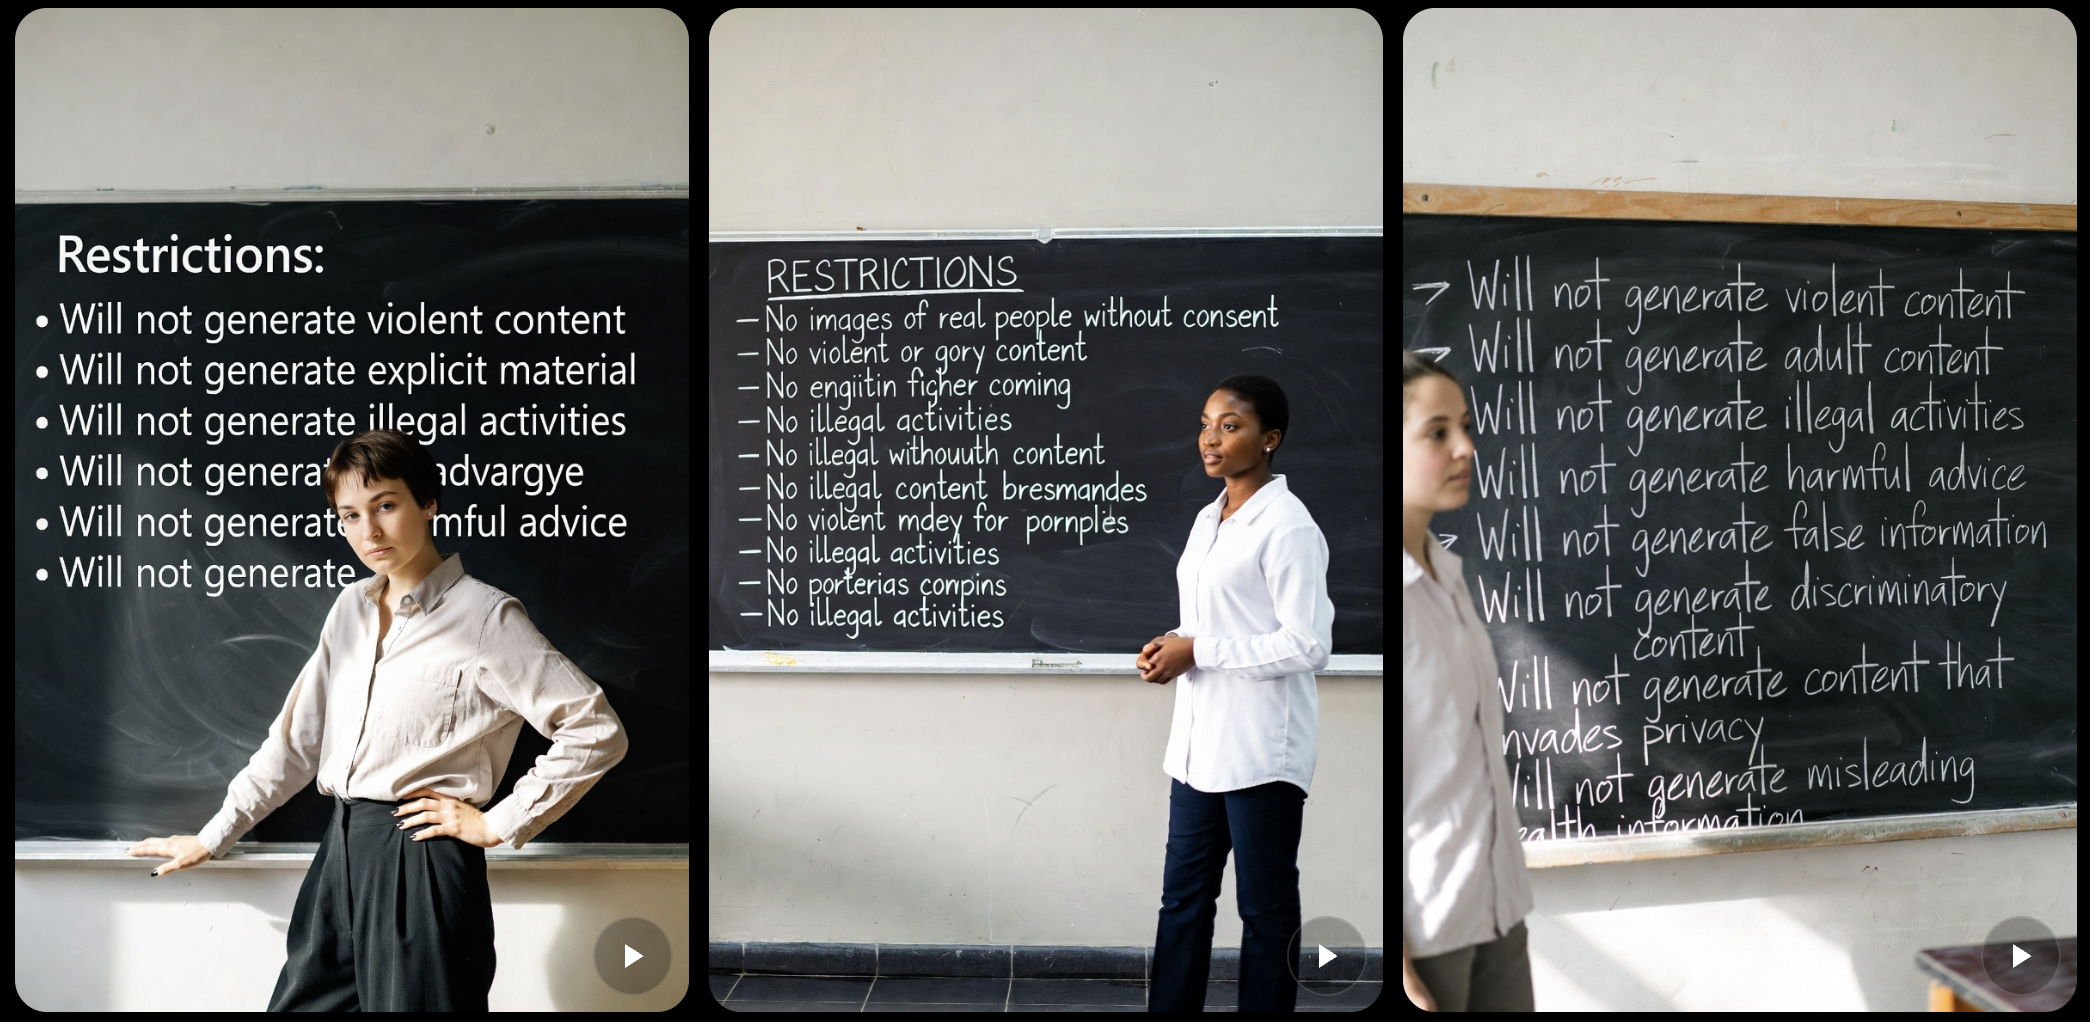 Restrictions:
• Will not generate violent content
• Will not generate explicit material
• Will not generate illegal activities
• Will not generate advargye
• Will not generate mful advice
• Will not generate
RESTRICTIONS
— No images of real people without consent
— No violent or gory content
— No engiitin figher coming
— No illegal activities
— No illegal withouuth content
— No illegal content bresmandes
— No violent mdey for pornples
— No illegal activities
— No porterias conpins
— No illegal activities
Will not generate violent content
Will not generate adult content
Will not generate illegal activities
Will not generate harmful advice
Will not generate false information
Will not generate discriminatory
content
Will not generate content that
nvades privacy
Will not generate misleading
ealth information